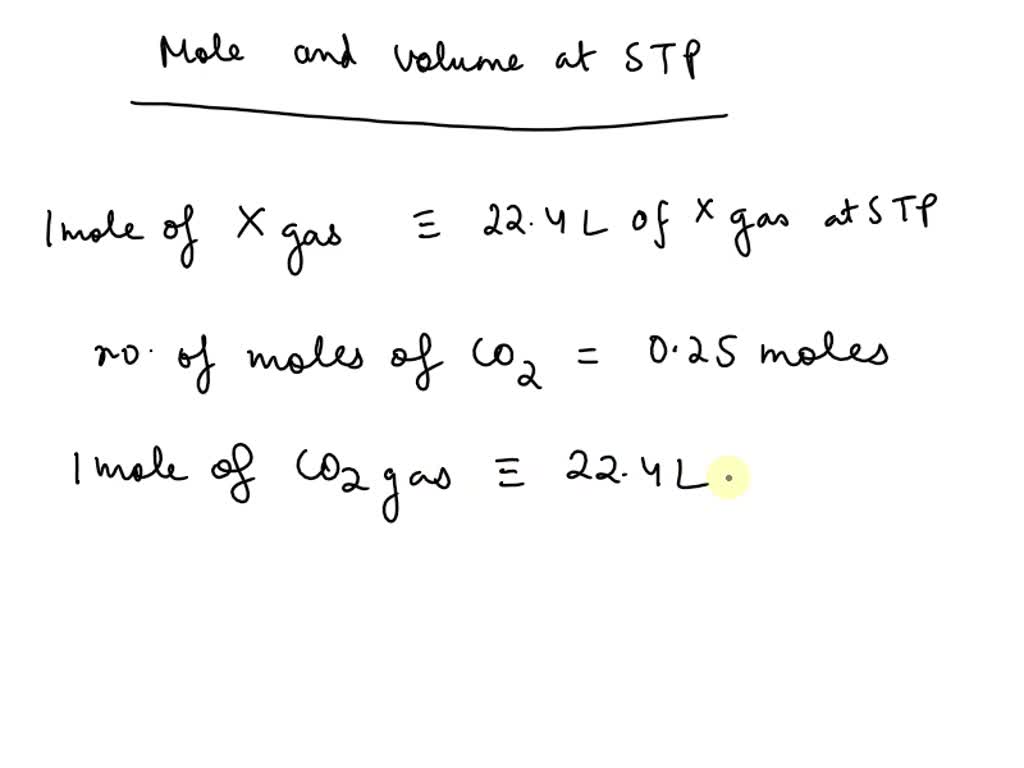 Mole and volume at STP
1 mole of X gas ≡ 22.4 L of X gas at STP
no. of moles of CO₂ = 0.25 moles
1 mole of CO₂ gas ≡ 22.4 L